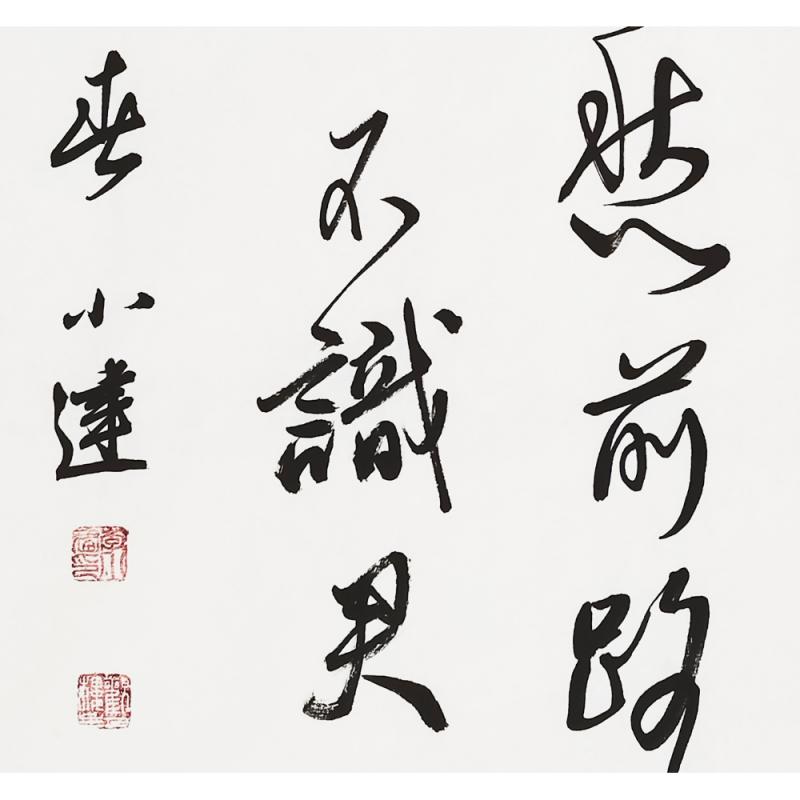 愁前路
不識君
春 小達